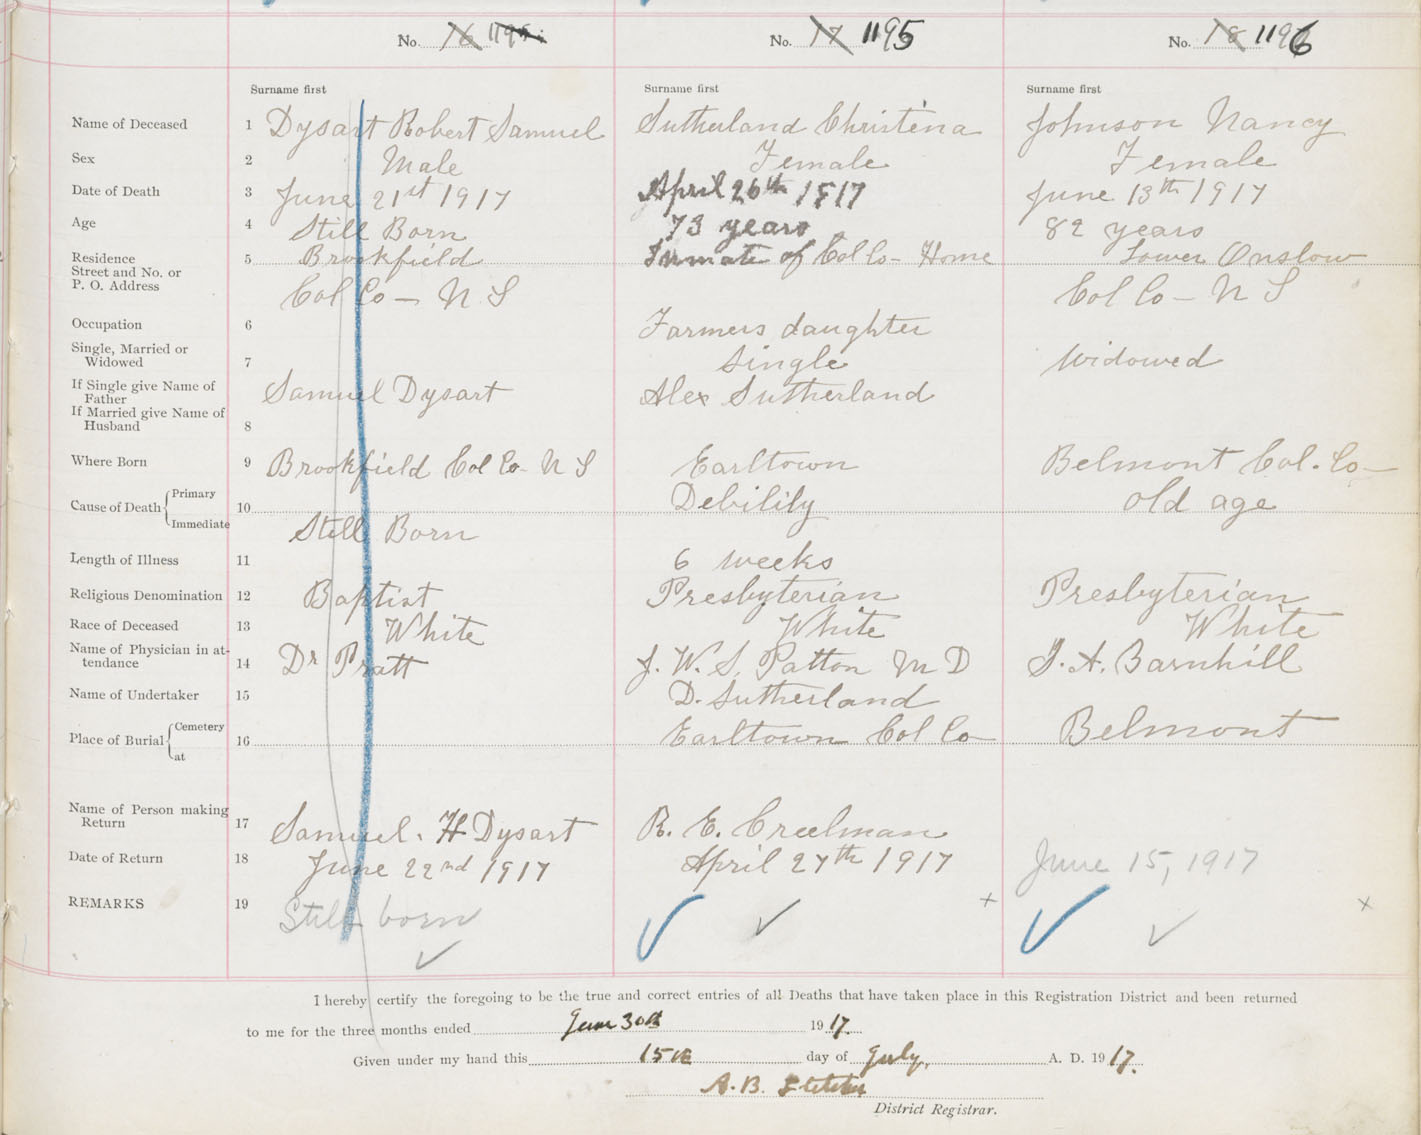 No. 16 1195 No. 17 1195 No. 18 1196
Surname first Surname first Surname first
Name of Deceased 1 Dysart Robert Samuel Sutherland Christena Johnson Nancy
Sex 2 Male Female Female
Date of Death 3 June 21st 1917 April 26th 1917 June 13th 1917
Age 4 Still Born 73 years 82 years
Residence 5 Brookfield Inmate of Col Co - Home Lower Onslow
Street and No. or
P. O. Address Col Co - N S Col Co - N S
Occupation 6 Farmers daughter
Single, Married or
Widowed 7 Single Widowed
If Single give Name of
Father Samuel Dysart Alex Sutherland
If Married give Name of
Husband 8
Where Born 9 Brookfield Col Co - N S Earltown Belmont Col. Co -
Cause of Death Primary 10 Debility old age
Immediate Still Born
Length of Illness 11 6 weeks
Religious Denomination 12 Baptist Presbyterian Presbyterian
Race of Deceased 13 White White White
Name of Physician in at-
tendance 14 Dr Pratt J. W. S. Patton M D J. A. Barnhill
Name of Undertaker 15 D. Sutherland
Place of Burial Cemetery 16 Earltown Col Co Belmont
at
Name of Person making
Return 17 Samuel. H Dysart R. E. Creelman
Date of Return 18 June 22nd 1917 April 27th 1917 June 15, 1917
REMARKS 19 Still born
I hereby certify the foregoing to be the true and correct entries of all Deaths that have taken place in this Registration District and been returned
to me for the three months ended June 30th 1917.
Given under my hand this 15th day of July, A. D. 1917.
A. B. Fletcher
District Registrar.